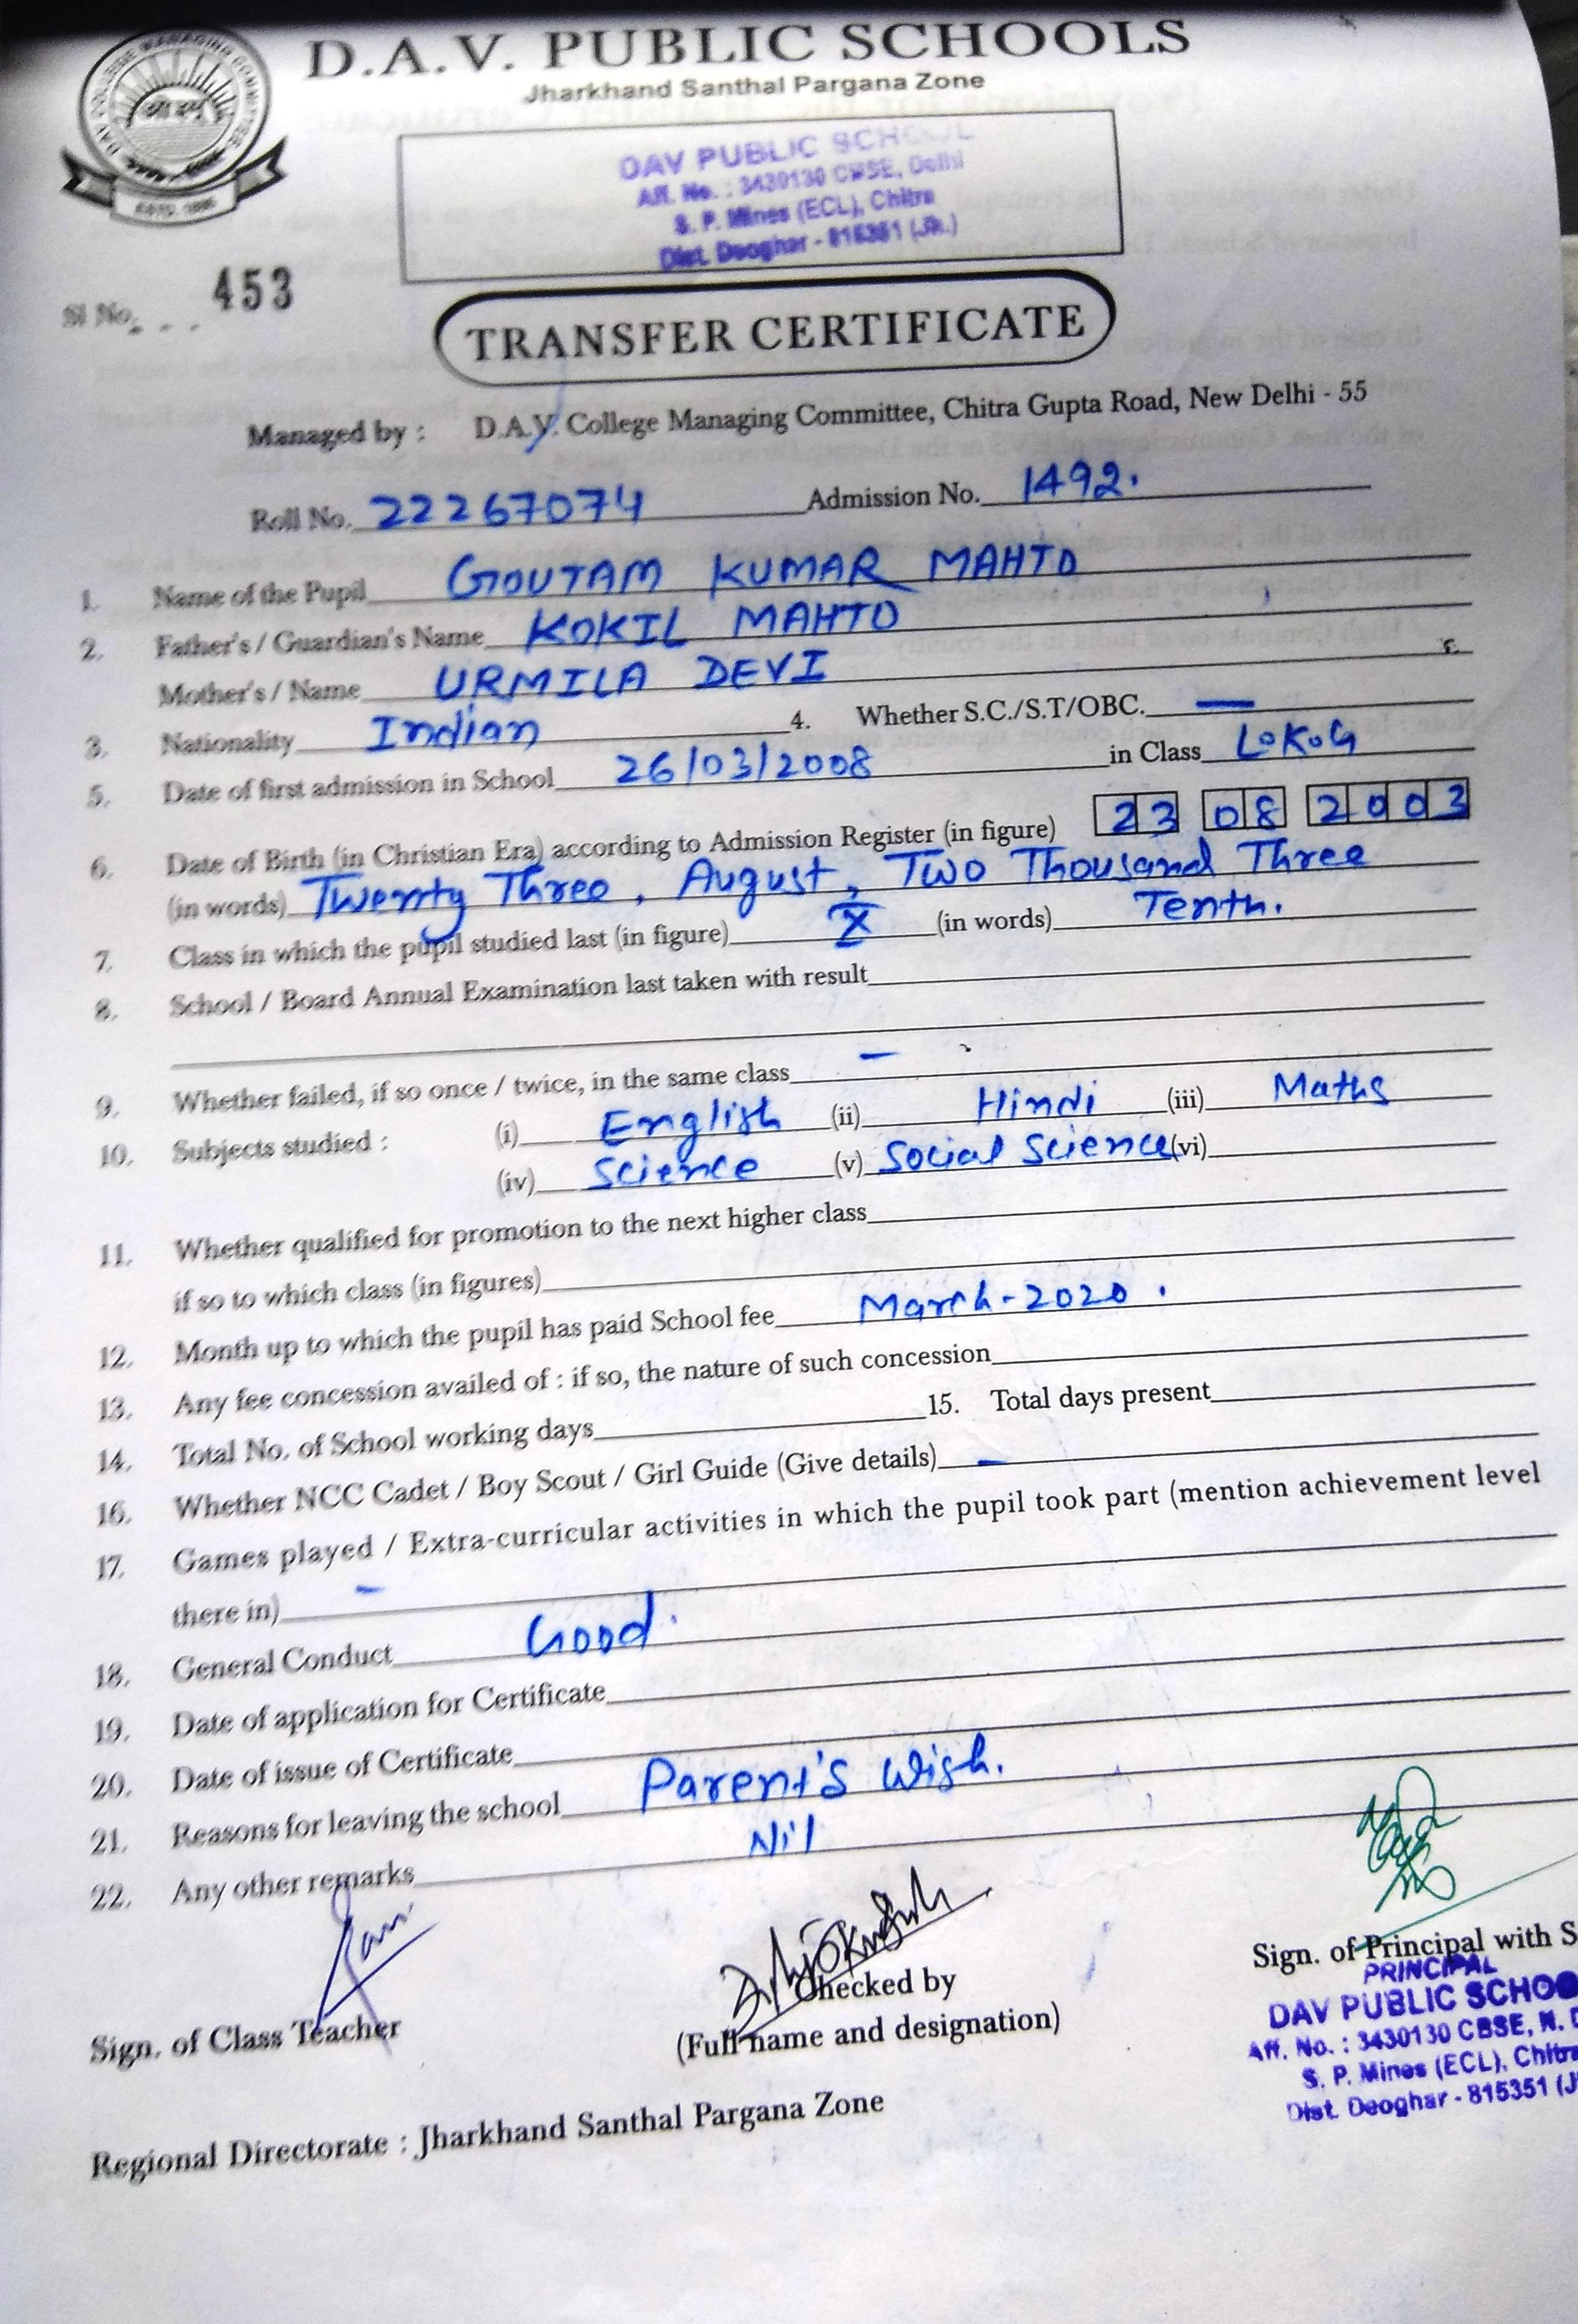 D.A.V. PUBLIC SCHOOLS
Jharkhand Santhal Pargana Zone
DAV PUBLIC SCHOOL
Aff. No. : 3430130 CBSE, Delhi
S. P. Mines (ECL), Chitra
Dist. Deoghar - 815351 (Jh.)
ESTD. 1886
Sl No. 453
TRANSFER CERTIFICATE
Managed by : D.A.V. College Managing Committee, Chitra Gupta Road, New Delhi - 55
Roll No. 22267074 Admission No. 1492.
1. Name of the Pupil GOUTAM KUMAR MAHTO
2. Father's / Guardian's Name KOKIL MAHTO
Mother's / Name URMILA DEVI
3. Nationality Indian 4. Whether S.C./S.T/OBC. —
5. Date of first admission in School 26/03/2008 in Class L.K.G
6. Date of Birth (in Christian Era) according to Admission Register (in figure) 23 08 2003
(in words) Twenty Three, August, Two Thousand Three
7. Class in which the pupil studied last (in figure) X (in words) Tenth.
8. School / Board Annual Examination last taken with result
9. Whether failed, if so once / twice, in the same class –
10. Subjects studied : (i) English (ii) Hindi (iii) Maths
(iv) Science (v) Social Science (vi)
11. Whether qualified for promotion to the next higher class
if so to which class (in figures)
12. Month up to which the pupil has paid School fee March-2020.
13. Any fee concession availed of : if so, the nature of such concession
14. Total No. of School working days 15. Total days present
16. Whether NCC Cadet / Boy Scout / Girl Guide (Give details) –
17. Games played / Extra-curricular activities in which the pupil took part (mention achievement level
there in) –
18. General Conduct Good.
19. Date of application for Certificate
20. Date of issue of Certificate
21. Reasons for leaving the school Parent's Wish.
22. Any other remarks Nil
Sign. of Class Teacher
Checked by
(Full name and designation)
Sign. of Principal with S
PRINCIPAL
DAV PUBLIC SCHOO
Aff. No. : 3430130 CBSE, N. D
S. P. Mines (ECL), Chitra
Dist. Deoghar - 815351 (J
Regional Directorate : Jharkhand Santhal Pargana Zone